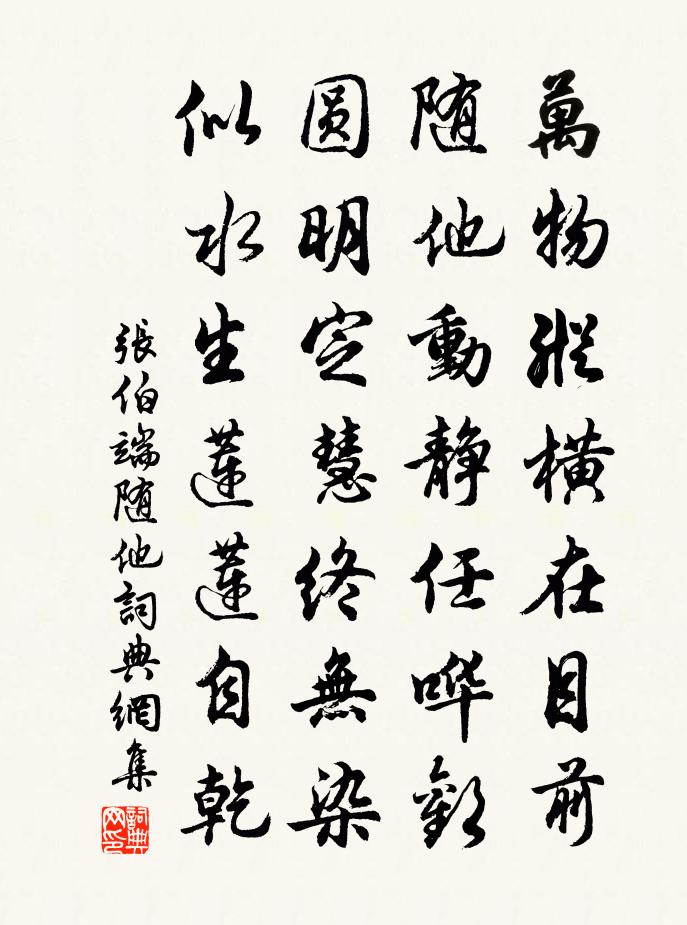 萬物縱橫在目前
随他動静任哗歡
圆明定慧終無染
似水生蓮蓮自乾
張伯端随他詞典網集
詞典网印